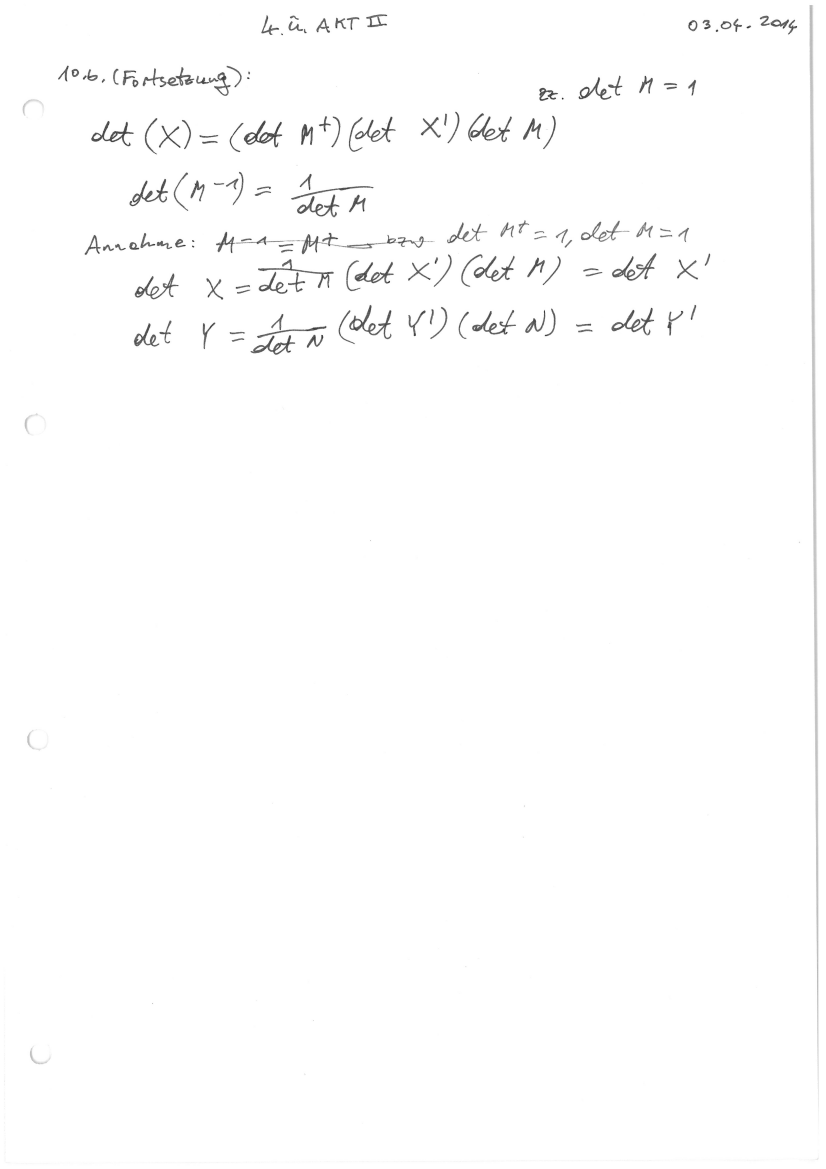 4. Ü. AKT II 03.04.2014
10.b. (Fortsetzung):
zz. det M = 1
det (X) = (det M⁺) (det X') (det M)
det (M⁻¹) = 1/det M
Annahme: ~~M⁻¹ = M⁺ bzw~~ det M⁺ = 1, det M = 1
det X = 1/det M (det X') (det M) = det X'
det Y = 1/det N (det Y') (det N) = det Y'